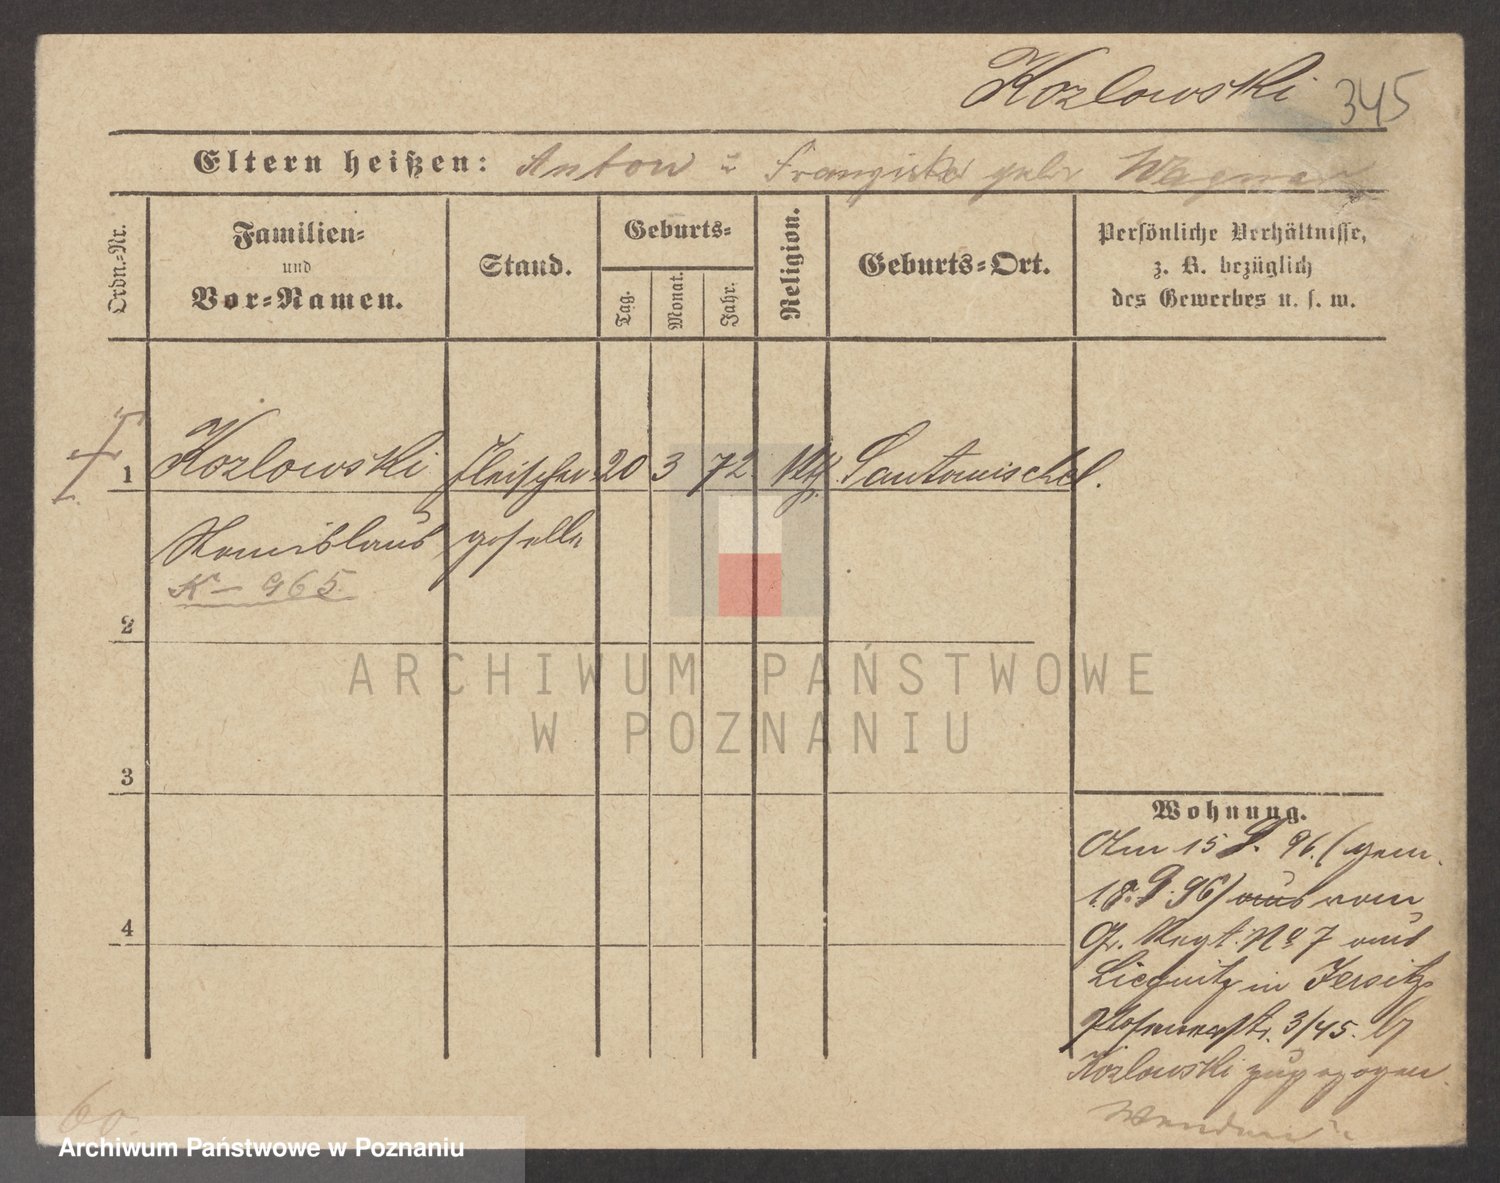 Kozlowski 345
Eltern heißen: Anton u Franziska geb. Wagner
Ordn.-Nr.
Familien-
und
Vor-Namen.
Stand.
Geburts-
Tag.
Monat.
Jahr.
Religion.
Geburts-Ort.
Persönliche Verhältnisse,
z. B. bezüglich
des Gewerbes u. s. w.
1 Kozlowski Fleischer- 20 3 72 kth. Santomischel.
Stanislaus geselle
K- 965
2
3
4
Wohnung.
Am 15 9. 96. (gem.
18. 9. 96) aus vom
Gr. Regt. No 7 aus
Liegnitz in Jersitz
Posenerstr. 3/45. b/
Kozlowski zugezogen.
60.
ARCHIWUM PAŃSTWOWE
W POZNANIU
Archiwum Państwowe w Poznaniu